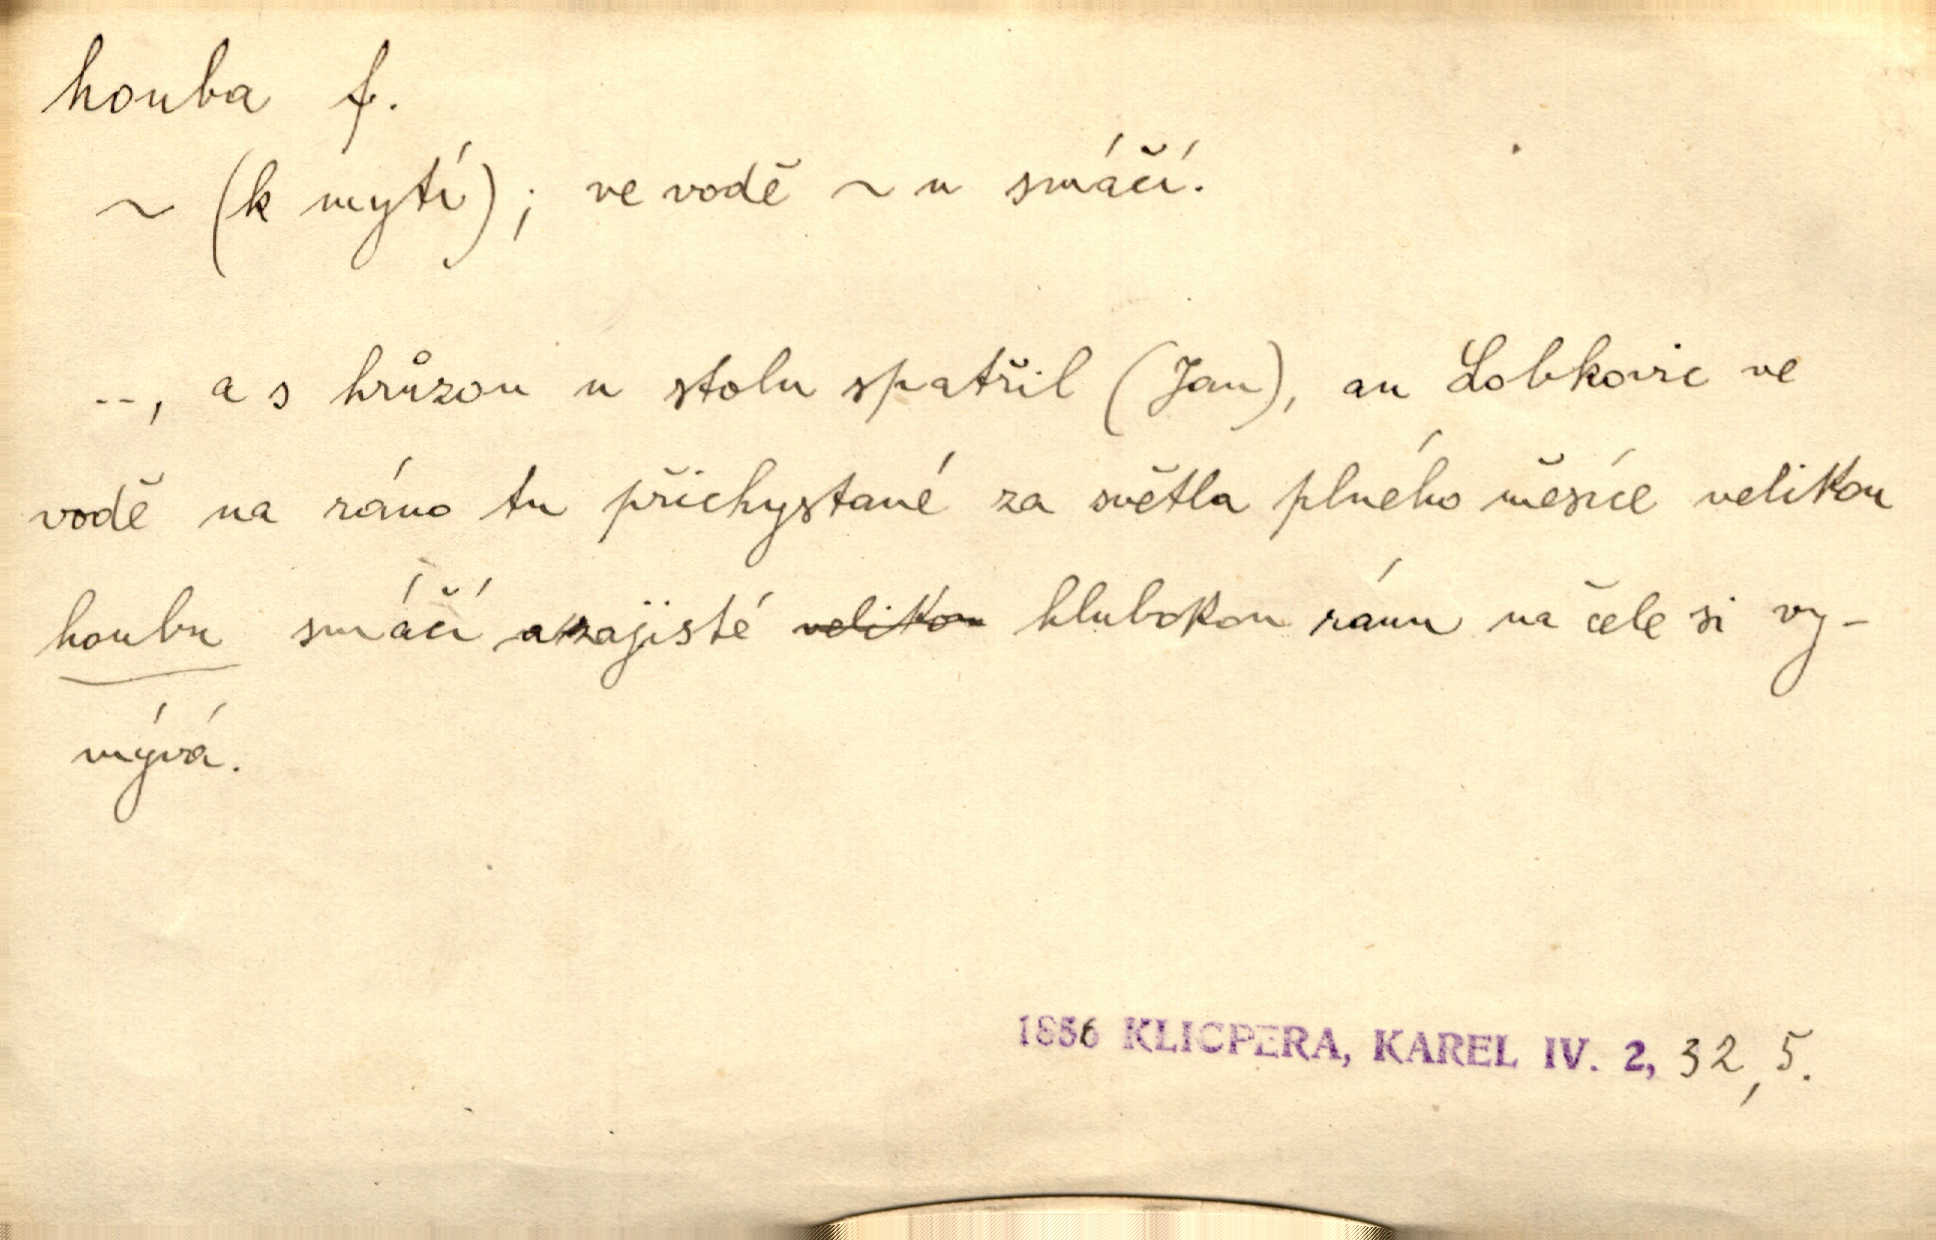 houba f.
~ (k mytí); ve vodě ~u smáčí.
--, a s hrůzou u stolu spatřil (Jan), an Lobkovic ve
vodě na ráno tu přichystané za světla plného měsíce velikou
houbu smáčí a zajisté ~~velikou~~ hlubokou ránu na čele si vy-
mývá.
1856 KLICPERA, KAREL IV. 2, 32, 5.